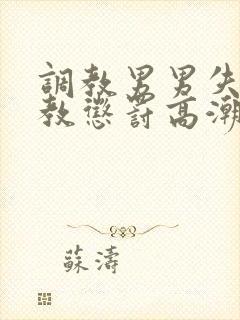 調教男男失
教懲罰高潮
蘇濤